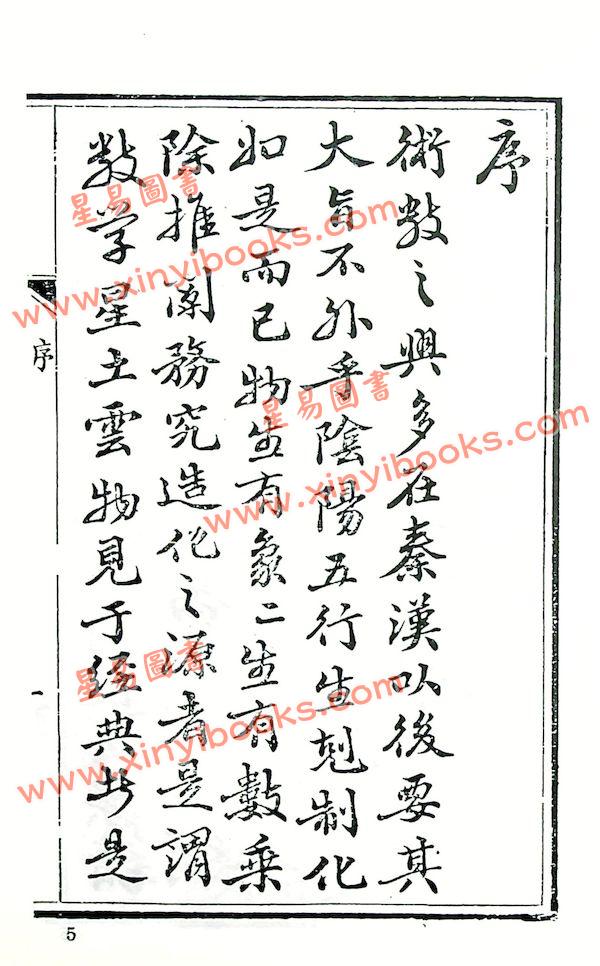 序
術數之興多在秦漢以後要其
大旨不外乎陰陽五行生剋制化
如是而已物生有象二生有數乘
除推闡務究造化之源者是謂
数学星土雲物見于經典此是
序
一
5
星易圖書
www.xinyibooks.com
星易圖書
www.xinyibooks.com
星易圖書
www.xinyibooks.com